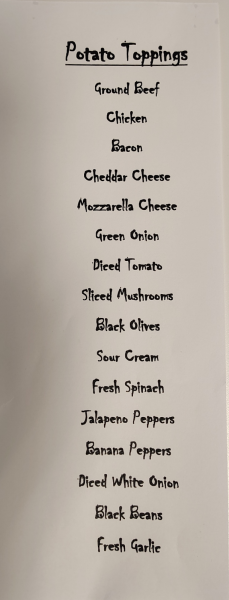 Potato Toppings
Ground Beef
Chicken
Bacon
Cheddar Cheese
Mozzarella Cheese
Green Onion
Diced Tomato
Sliced Mushrooms
Black Olives
Sour Cream
Fresh Spinach
Jalapeno Peppers
Banana Peppers
Diced White Onion
Black Beans
Fresh Garlic